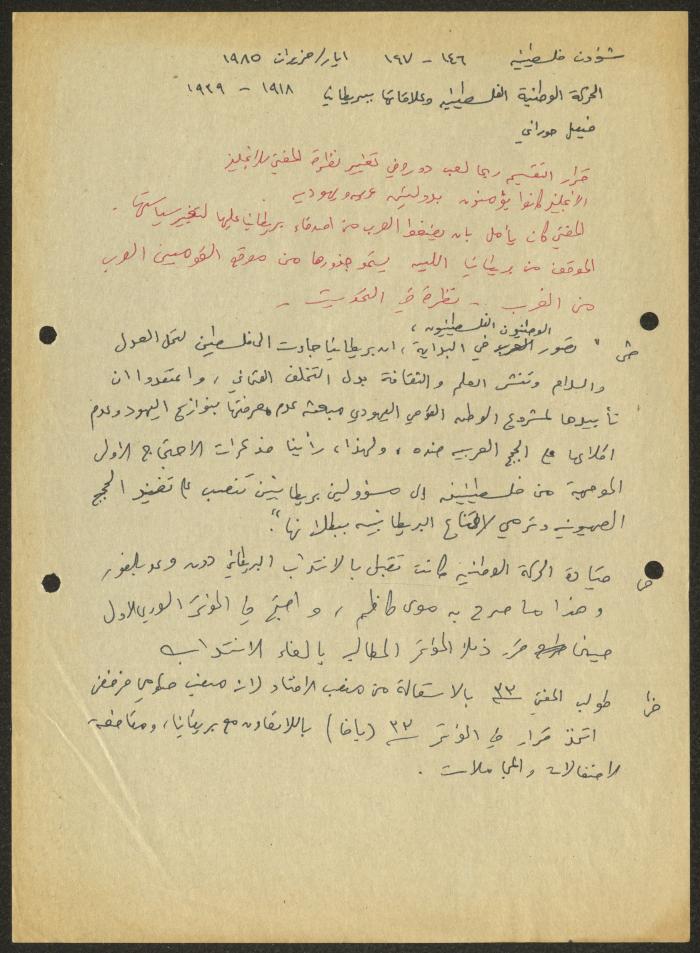 شؤون فلسطينية ١٤٦ - ١٤٧ ايار/حزيران ١٩٨٥
الحركة الوطنية الفلسطينية وعلاقاتها ببريطانيا ١٩١٨ - ١٩٣٩
فيصل حوراني
قرار التقسيم ربما لعب دوره في تغيير نظرة المفتي للانجليز
الانجليز كانوا يؤمنون بدولتين عربية ويهودية
المفتي كان يأمل بان يضغط العرب من اصدقاء بريطانيا عليها لتغيير سياستها .
الموقف من بريطانيا اللين يستمد جذورها من موقع القوميين العرب
من الغرب .. نظرة في التحديث -
الوطنيون الفلسطينيون ،
" تصور في البداية ، ان بريطانيا جاءت الى فلسطين لتحمل العدل
والسلام وتنشر العلم والثقافة بدل التخلف العثماني ، واعتقدوا ان
تأييدها لمشروع الوطن القومي اليهودي مبعثه عدم معرفتها بنوازع اليهود وعدم
اطلاعها على الحجج العربية ضده ، ولهذا ، رأينا مذكرات الاحتجاج الاولى
الموجهة من فلسطينيين الى مسؤولين بريطانيين تنصب على تفنيد الحجج
الصهيونية وترمي لاقناع البريطانيين ببطلانها " .
قيادة الحركة الوطنية كانت تقبل بالانتداب البريطاني دون وعد بلفور
وهذا ما صرح به موسى كاظم ، و في المؤتمر السوري الاول
حينما قرر ذلك المؤتمر المطالبة بالغاء الانتداب
طولب المفتي ٣٣ بالاستقالة من منصب الافتاء لانه منصب حكومي فرفض
اتخذ قرار في المؤتمر ٣٣ (يافا) باللاتعاون مع بريطانيا ، ومقاطعة
الاحتفالات والمجاملات .